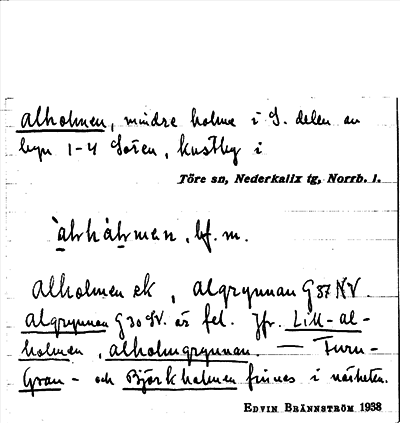 alholmen, mindre holme i S. delen av
byn 1-4 Sören, kustby i
Töre sn, Nederkalix tg, Norrb. l.
`aḷhåḷmen, bf. m.
alholmen ek, algrynnan G 37 NV.
algrynnan G 30 SV. är fel. Jfr. Lill-al-
holmen, alholmgrynnan. — Furu-
Gran- och Björkholmen finnes i närheten.
EDVIN BRÄNNSTRÖM 1938